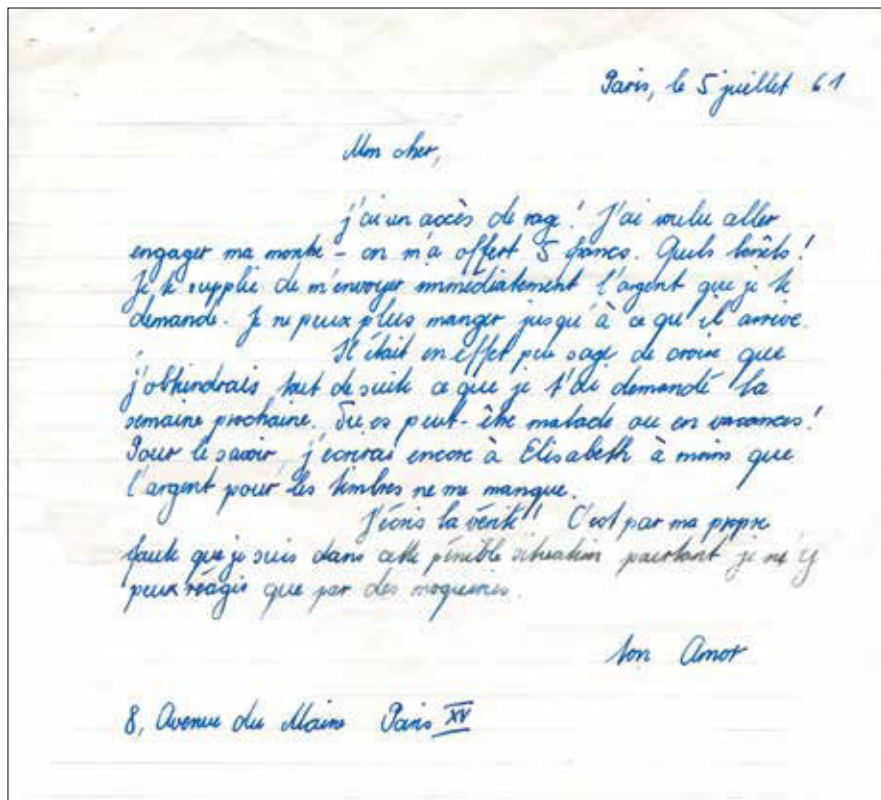 Paris, le 5 juillet 61
Mon cher,
j'ai un accès de rage! J'ai voulu aller
engager ma montre - on m'a offert 5 francs. Quels
Je te supplie de m'envoyer immédiatement l'argent que je te
demande. Je ne peux plus manger jusqu'à ce qu'il arrive.
Il était en effet peu sage de croire que
j'obtiendrais tout de suite ce que je t'ai demandé la
semaine prochaine. Tu es peut-être malade ou en vacances!
Pour le savoir, j'écrirai encore à Elisabeth à moins que
l'argent pour les timbres ne me manque.
J'écris la vérité! C'est par ma propre
faute que je suis dans cette pénible situation pourtant je ne y
peux réagir que par des moqueries.
ton Amot
8, Avenue du Maine Paris XV